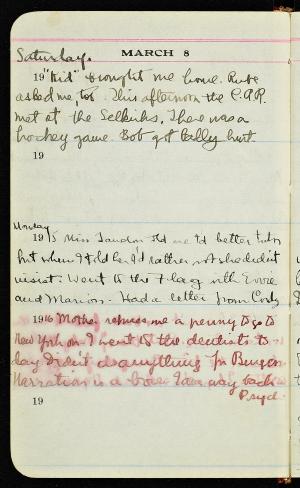 MARCH 8
Saturday.
19 "Kid" brought me home. Rube
asked me, too. This afternoon the C.A.R.
met at the Selkirks. There was a
hockey game. Bob got badly hurt.
19
Monday
1915 Miss Landon told me I'd better tutor
but when I told her I'd rather not she didn't
insist. Went to the Flag with Evvie
and Marion. Had a letter from Cody
1916 Mother refuses me a penny to go to
New York on I went to the dentists to-
day Didn't do anything Jn Burgen
Narration is a bore I am way back
Psyd.
19